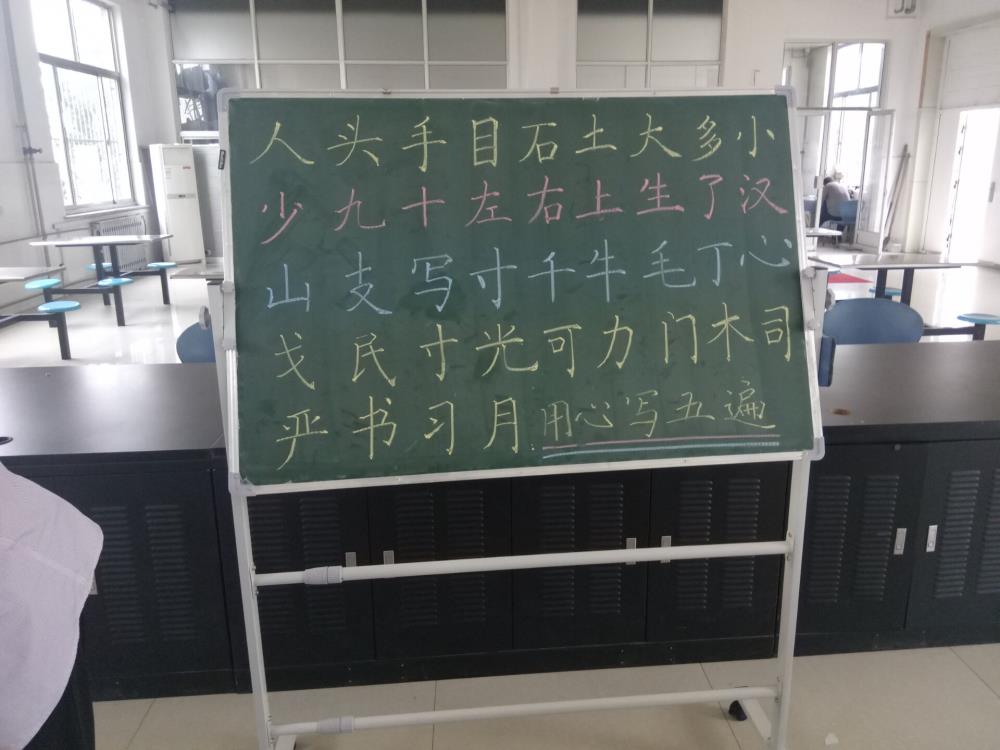 人头手目石土大多小
少九十左右上生了汉
山支写寸千牛毛丁心
戈民寸光可力门木司
严书习月用心写五遍